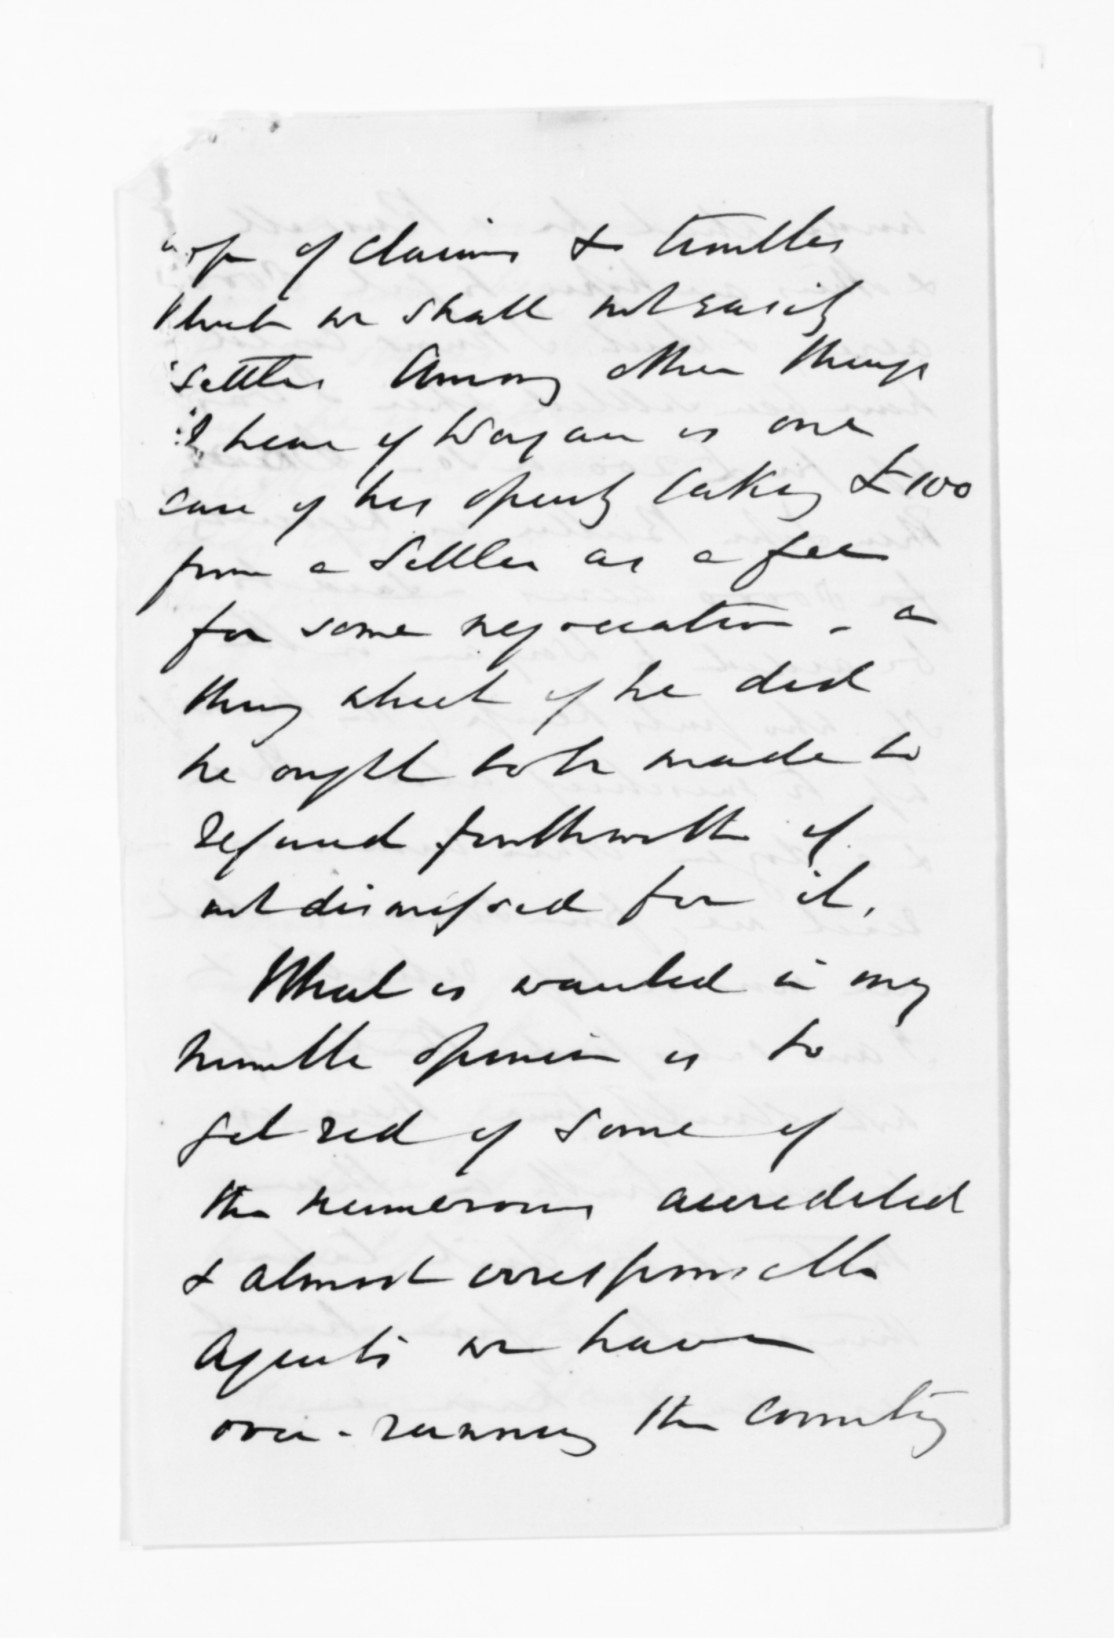 crop of claims & troubles
which we shall not easily
settle. Among other things
I hear of Wayan is one
case of his openly taking £100
from a settler as a fee
for some negociation - a
thing which if he did
he ought to be made to
refund forthwith if
not dismissed for it.
What is wanted in my
humble opinion is to
get rid of some of
the numerous accredited
& almost irresponsible
Agents we have
over-running the country